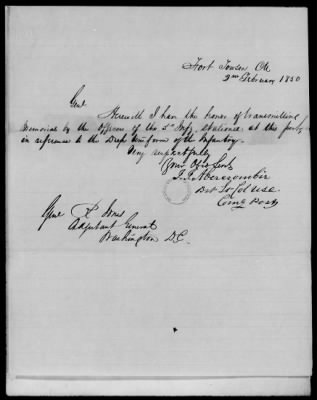 Fort Towson, CN.
2nd February 1850
Genl
Herewith I have the honor of transmitting
Memorial by the Officers of the 5th Infy. stationed at this post,
in reference to the Dress Uniform of the Infantry.
Very respectfully
Your Obt Servt
J. J. Abercrombie
Bvt Lt Col USA
Comg Post
Genl R. Jones
Adjutant General
Washington D.C.